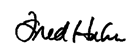 Fred Hahn